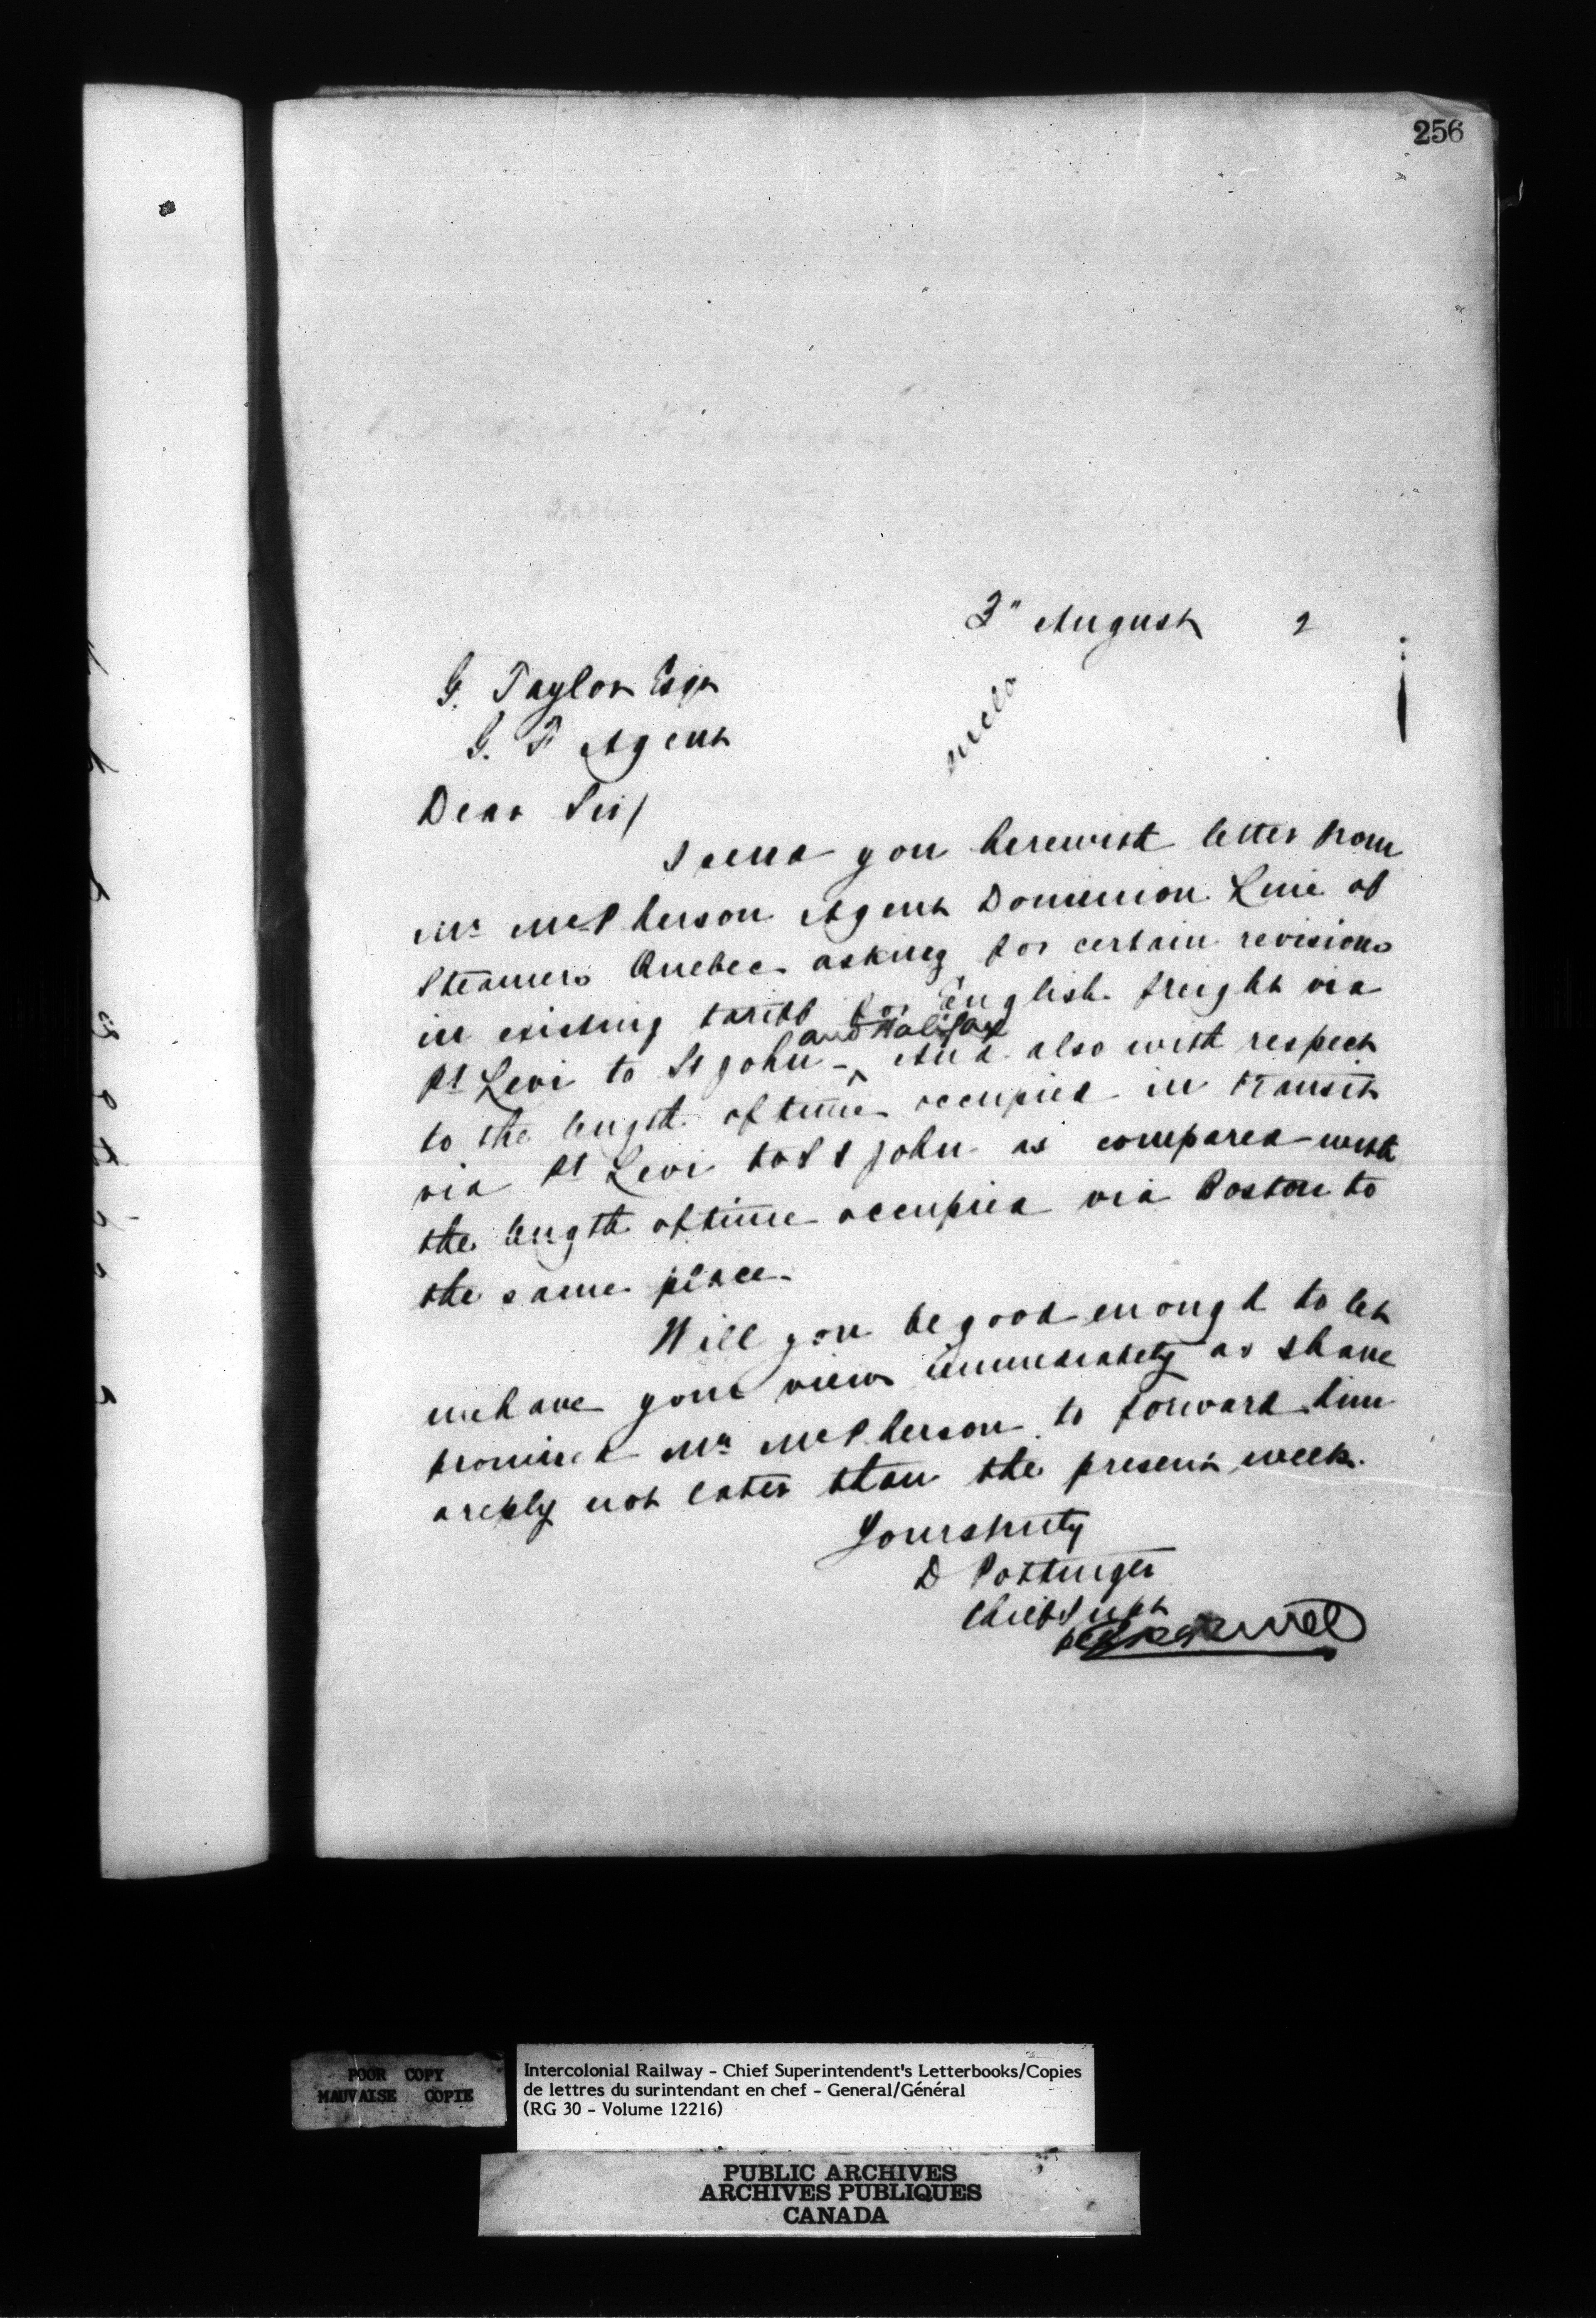 256
3" August 2
G. Taylor Esqr
G. F Agent
incls
Dear Sir/
I send you herewith letter from
Mr McPherson Agent Dominion Line of
Steamers Quebec asking for certain revisions
in existing tariff for English freight via
and Halifax
Pt Levi to St John - ^ And also with respect
to the length of time occupied in transit
via Pt Levi to St John as compared with
the length of time occupied via Boston to
the same place.
Will you be good enough to let
me have your views immediately as I have
promised Mr McPherson to forward him
a reply not later than the present week.
Yours truly
D Pottinger
Chief Supt
POOR COPY
MAUVAISE COPIE
Intercolonial Railway - Chief Superintendent's Letterbooks/Copies
de lettres du surintendant en chef - General/Général
(RG 30 - Volume 12216)
PUBLIC ARCHIVES
ARCHIVES PUBLIQUES
CANADA